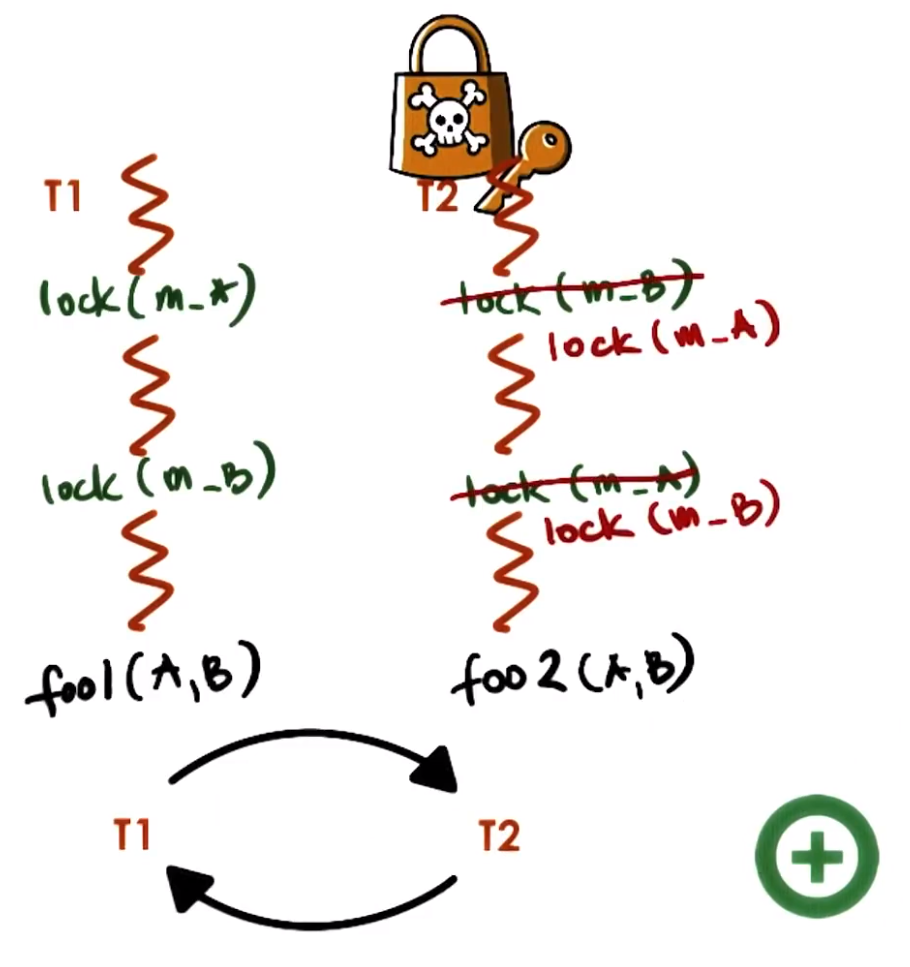 T1
lock(m_A)
lock(m_B)
foo1(A,B)
T2
lock(m_B)
lock(m_A)
lock(m_A)
lock(m_B)
foo2(A,B)
T1
T2